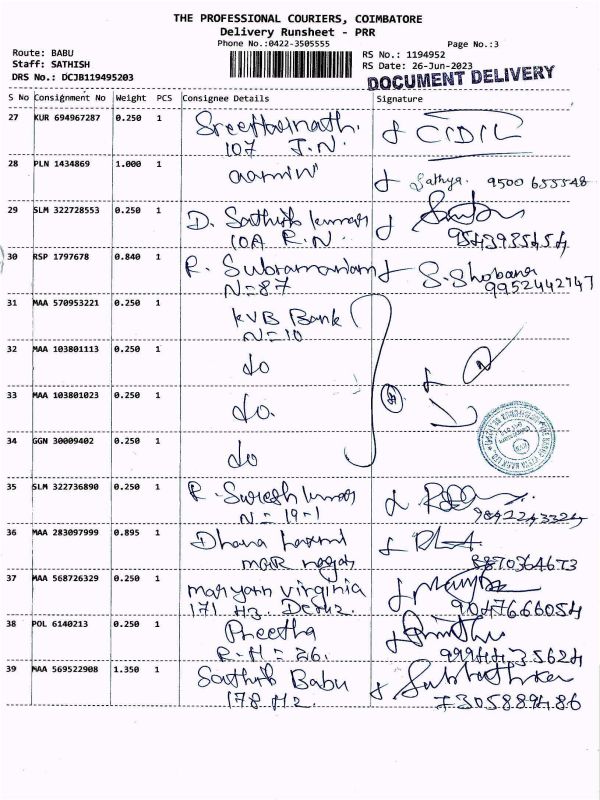 THE PROFESSIONAL COURIERS, COIMBATORE
Delivery Runsheet - PRR
Phone No.:0422-3505555
Page No.:3
Route: BABU
Staff: SATHISH
DRS No.: DCJB119495203
RS No.: 1194952
RS Date: 26-Jun-2023
DOCUMENT DELIVERY
S No Consignment No Weight PCS Consignee Details Signature
27 KUR 694967287 0.250 1
107 J.N.
28 PLN 1434869 1.000 1 aamin
Sathya. 9500 655548
29 SLM 322728553 0.250 1 D. Sathish kumar
10A R.N.
30 RSP 1797678 0.840 1 R. Subramaniam S. Shobana
N=87 9952442747
31 MAA 570953221 0.250 1 KVB Bank
N=10
32 MAA 103801113 0.250 1 do
33 MAA 103801023 0.250 1 do.
34 GGN 30009402 0.250 1 do
35 SLM 322736890 0.250 1 R. Suresh kumar
N=19-1
36 MAA 283097999 0.895 1 Dhana Laxmi
MGR nagar 8870364673
37 MAA 568726329 0.250 1 maryann virginia
171 H2
38 POL 6140213 0.250 1 Preetha
R-H=26.
39 MAA 569522908 1.350 1 Sathish Babu
178 H2 7305889486